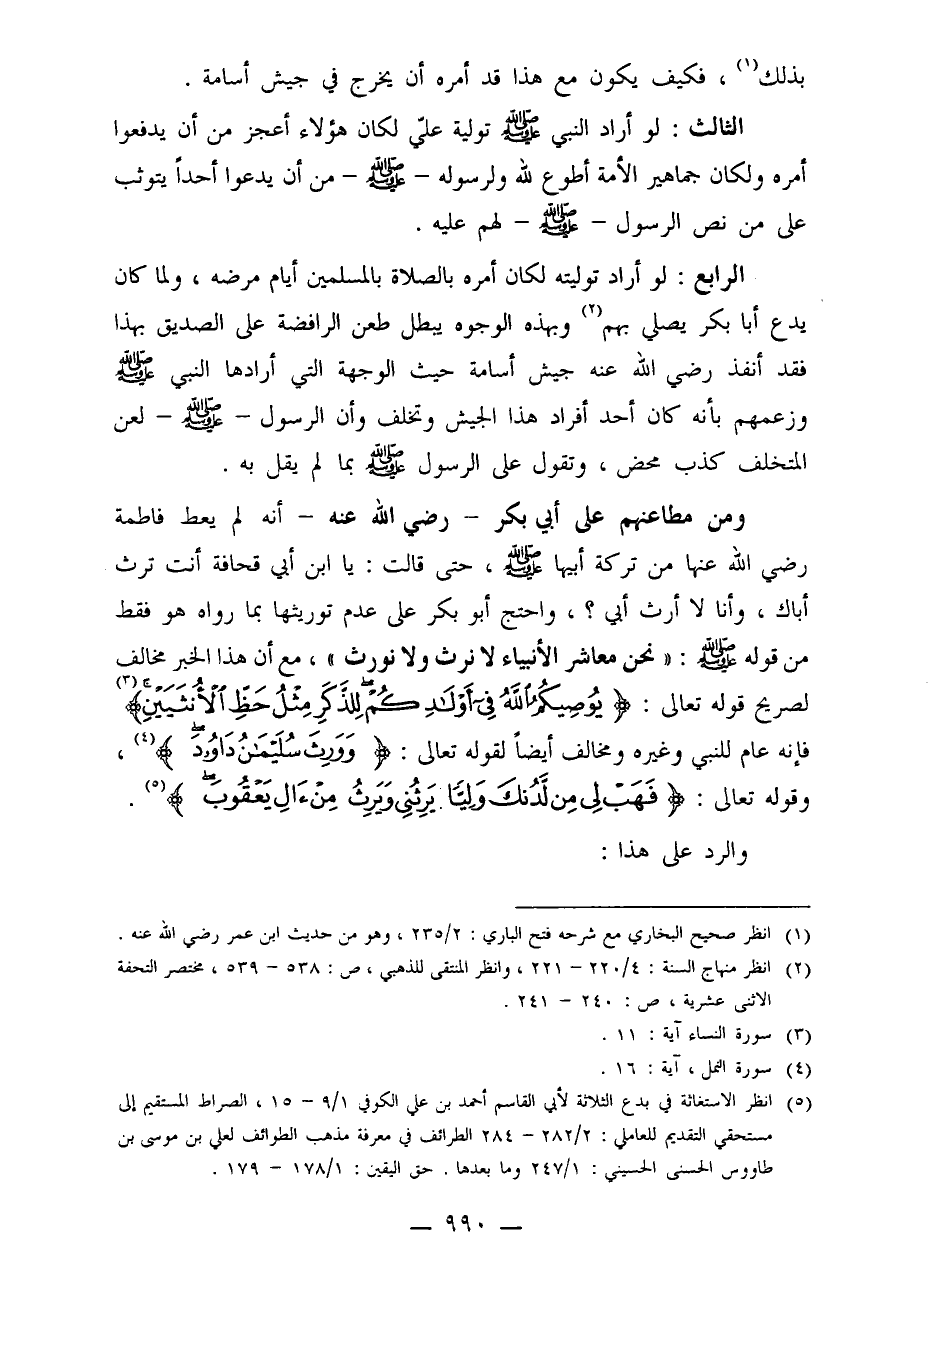 بذلك(١) ، فكيف يكون مع هذا قد أمره أن يخرج في جيش أسامة .
الثالث : لو أراد النبي ﷺ تولية عليّ لكان هؤلاء أعجز من أن يدفعوا
أمره ولكان جماهير الأمة أطوع لله ولرسوله – ﷺ – من أن يدعوا أحداً يتوثب
على من نص الرسول – ﷺ – لهم عليه .
الرابع : لو أراد توليته لكان أمره بالصلاة بالمسلمين أيام مرضه ، ولما كان
يدع أبا بكر يصلي بهم(٢) وبهذه الوجوه يبطل طعن الرافضة على الصديق بهذا
فقد أنفذ رضي الله عنه جيش أسامة حيث الوجهة التي أرادها النبي ﷺ
وزعمهم بأنه كان أحد أفراد هذا الجيش وتخلف وأن الرسول – ﷺ – لعن
المتخلف كذب محض ، وتقول على الرسول ﷺ بما لم يقل به .
ومن مطاعنهم على أبي بكر – رضي الله عنه – أنه لم يعط فاطمة
رضي الله عنها من تركة أبيها ﷺ ، حتى قالت : يا ابن أبي قحافة أنت ترث
أباك ، وأنا لا أرث أبي ؟ ، واحتج أبو بكر على عدم توريثها بما رواه هو فقط
من قوله ﷺ : « نحن معاشر الأنبياء لا نرث ولا نورث » ، مع أن هذا الخبر مخالف
لصريح قوله تعالى : ﴿ يُوصِيكُمُ ٱللَّهُ فِىٓ أَوْلَٰدِكُمْۖ لِلذَّكَرِ مِثْلُ حَظِّ ٱلْأُنثَيَيْنِۚ ﴾(٣)
فإنه عام للنبي وغيره ومخالف أيضاً لقوله تعالى : ﴿ وَوَرِثَ سُلَيْمَٰنُ دَاوُۥدَۖ ﴾(٤) ،
وقوله تعالى : ﴿ فَهَبْ لِى مِن لَّدُنكَ وَلِيًّا يَرِثُنِى وَيَرِثُ مِنْ ءَالِ يَعْقُوبَۖ ﴾(٥) .
والرد على هذا :
(١) انظر صحيح البخاري مع شرحه فتح الباري : ٢٣٥/٢ ، وهو من حديث ابن عمر رضي الله عنه .
(٢) انظر منهاج السنة : ٢٢٠/٤ – ٢٢١ ، وانظر المنتقى للذهبي ، ص : ٥٣٨ – ٥٣٩ ، مختصر التحفة
الاثنى عشرية ، ص : ٢٤٠ – ٢٤١ .
(٣) سورة النساء آية : ١١ .
(٤) سورة النمل ، آية : ١٦ .
(٥) انظر الاستغاثة في بدع الثلاثة لأبي القاسم أحمد بن علي الكوفي ٩/١ – ١٥ ، الصراط المستقيم إلى
مستحقي التقديم للعاملي : ٢٨٢/٢ – ٢٨٤ الطرائف في معرفة مذهب الطوائف لعلي بن موسى بن
طاووس الحسنى الحسيني : ٢٤٧/١ وما بعدها . حق اليقين : ١٧٨/١ – ١٧٩ .
— ٩٩٠ —